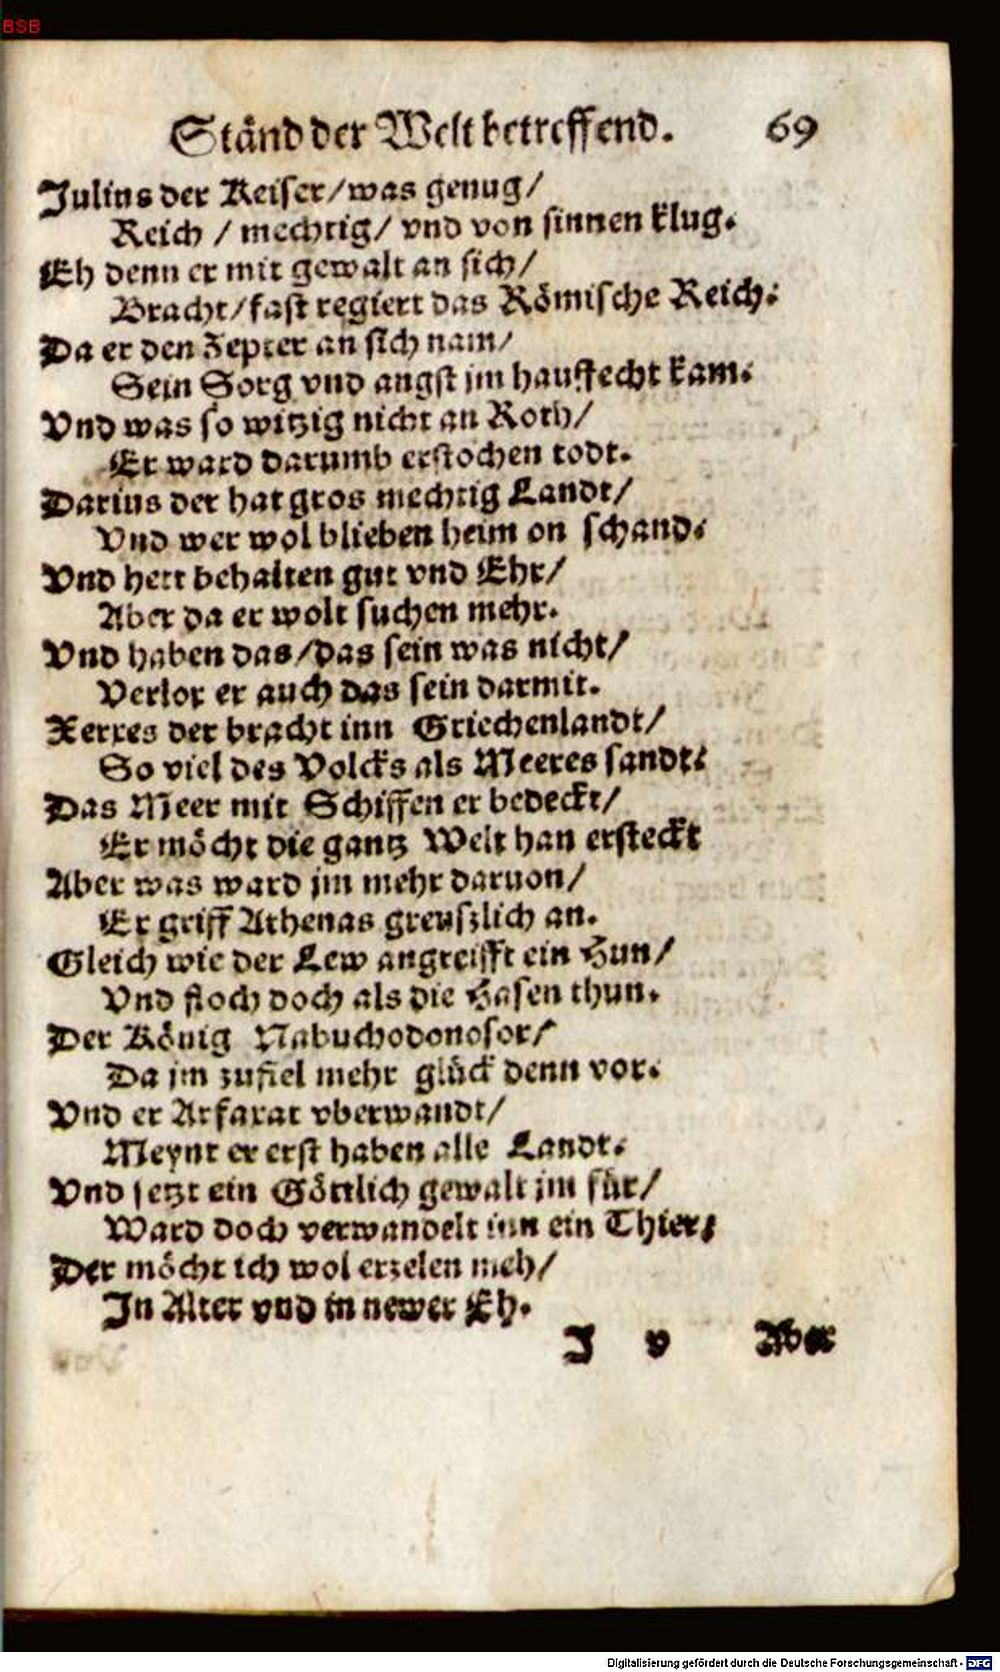 BSB
Ständ der Welt betreffend. 69
Julius der Keiser/was genug/
Reich / mechtig/ vnd von sinnen klug.
Eh denn er mit gewalt an sich/
Bracht/fast regiert das Römische Reich:
Da er den Zepter an sich nam/
Sein Sorg vnd angst jm hauffecht kam.
Vnd was so witzig nicht an Roth/
Er ward darumb erstochen todt.
Darius der hat gros mechtig Landt/
Vnd wer wol blieben heim on schand.
Vnd hett behalten gut vnd Ehr/
Aber da er wolt suchen mehr.
Vnd haben das/das sein was nicht/
Verlor er auch das sein darmit.
Xerxes der bracht inn Griechenlandt/
So viel des Volcks als Meeres sandt:
Das Meer mit Schiffen er bedeckt/
Er möcht die gantz Welt han ersteckt
Aber was ward jm mehr daruon/
Er griff Athenas greuszlich an.
Gleich wie der Lew angreifft ein Hun/
Vnd floch doch als die Hasen thun.
Der König Nabuchodonosor/
Da jm zufiel mehr glück denn vor.
Vnd er Arfaxat vberwandt/
Meynt er erst haben alle Landt.
Vnd setzt ein Göttlich gewalt jm für/
Ward doch verwandelt inn ein Thier;
Der möcht ich wol erzelen meh/
In Alter vnd in newer Eh.
J v Aber
Digitalisierung gefördert durch die Deutsche Forschungsgemeinschaft - DFG